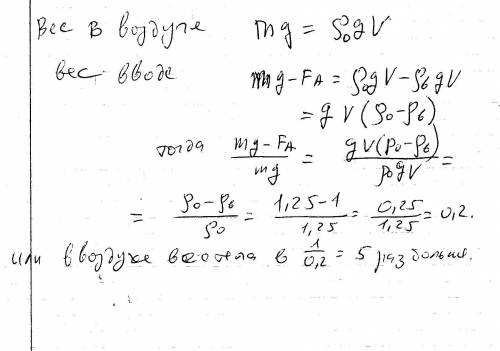 Вес в воздухе mg = ρ₀gV
вес в воде mg - FА = ρ₀gV - ρвgV
= gV(ρ₀ - ρв)
тогда (mg - FА)/mg = gV(ρ₀ - ρв)/ρ₀gV =
= (ρ₀ - ρв)/ρ₀ = (1,25 - 1)/1,25 = 0,25/1,25 = 0,2.
или в воздухе вес тела в 1/0,2 = 5 раз больше.